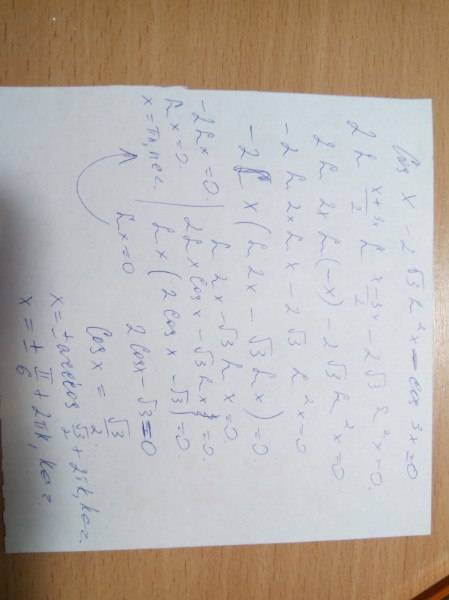 Cos x - 2√3 sin²x - cos 3x = 0
2 sin (x+3x)/2 sin (x-3x)/2 - 2√3 sin²x = 0.
2 sin 2x sin(-x) - 2√3 sin²x = 0
-2 sin 2x sin x - 2√3 sin²x = 0
-2 sin x (sin 2x - √3 sin x) = 0.
-2 sin x = 0. | sin 2x - √3 sin x = 0
sin x = 0. | 2 sin x cos x - √3 sin x = 0.
x = πn, n∈Z. | sin x (2 cos x - √3) = 0
sin x = 0 2 cos x - √3 = 0
Cos x = √3/2
x = ± arccos √3/2 + 2πk, k∈Z.
x = ± π/6 + 2πk, k∈Z.